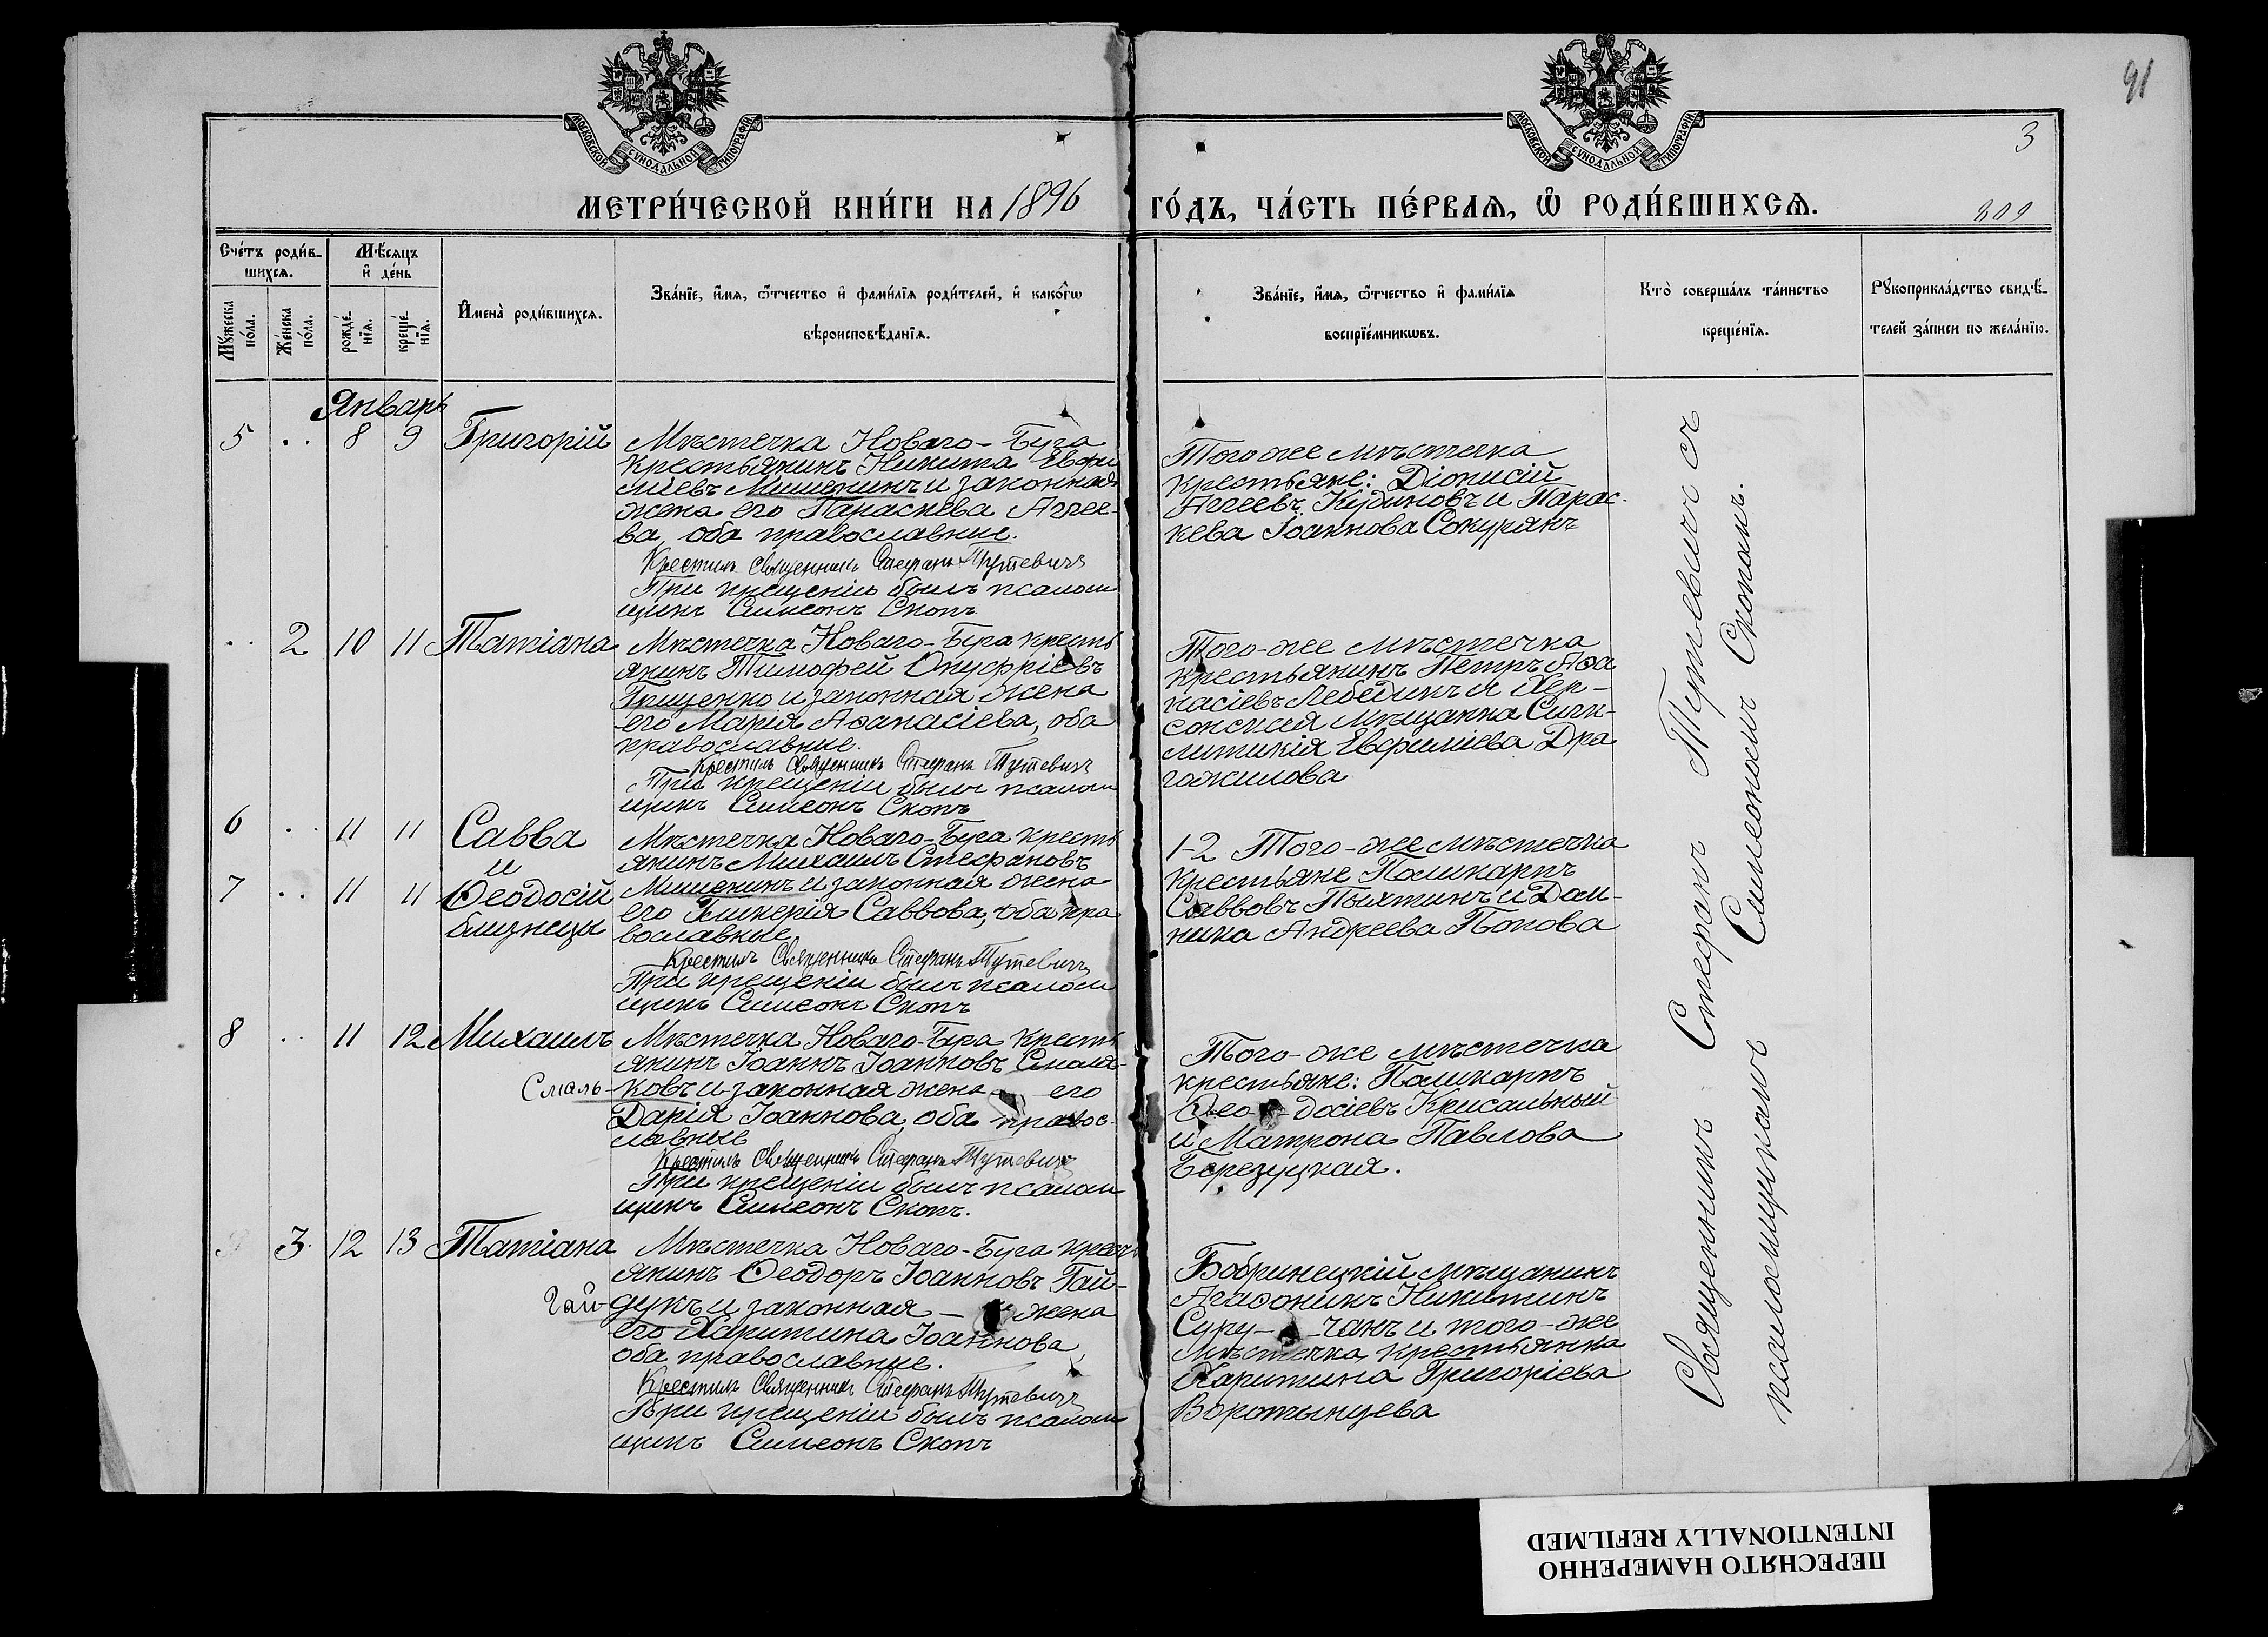 91
3
МОСКОВСКОЙ СѴНОДАЛЬНОЙ ТИПОГРАФІИ
МОСКОВСКОЙ СѴНОДАЛЬНОЙ ТИПОГРАФІИ
МЕТРИ́ЧЕСКОЙ КНИ́ГИ НА 1896 ГО́ДЪ, ЧА́СТЬ ПЕ́РВАѦ, Ѿ РОДИ́ВШИХСѦ.
Сче́тъ роди́в-
шихсѧ.
Мꙋ́жеска
по́ла.
Же́нска
по́ла.
Мѣ́сѧцъ
и҆ де́нь
рожде́-
нїѧ.
креще́-
нїѧ.
И҆мена̀ роди́вшихсѧ.
Зва́нїе, и҆́мѧ, ѻ҆́тчество и҆ фами́лїѧ роди́телей, и҆ како́гѡ
вѣроисповѣ́данїѧ.
Зва́нїе, и҆́мѧ, ѻ҆́тчество и҆ фами́лїѧ
воспрїе́мникѡвъ.
Кто̀ соверша́лъ та́инство
креще́нїѧ.
Рꙋкоприкла́дство свидѣ́-
телей за́писи по жела́нїю.
Январь
5 .. 8 9 Григорій
Мѣстечка Новаго-Буга
крестьянинъ Никита Евфи
міевъ Мишенинъ и законная
жена его Параскева Аггее-
ва, оба православные.
Крестилъ Священникъ Стефанъ Тутевичъ
При крещеніи былъ псалом
щикъ Симеонъ Скопъ
Того же мѣстечка
крестьяне: Діонисій
Аггеевъ Кудиновъ и Парас-
кева Іоаннова Сокурянъ
.. 2 10 11 Татіана
Мѣстечка Новаго-Буга кресть
янинъ Тимофей Онуфріевъ
Грищенко и законная жена
его Марія Аѳанасіева, оба
православные.
Крестилъ Священникъ Стефанъ Тутевичъ
При крещеніи былъ псалом
щикъ Симеонъ Скопъ
Того-же мѣстечка
крестьянинъ Петръ Аѳа
насіевъ Лебединъ и Хер-
сонская мѣщанка Синк-
литикія Евфиміева Дра
гожилова
6 .. 11 11 Савва
и
7 .. 11 11 Ѳеодосій
близнецы
Мѣстечка Новаго-Буга кресть
янинъ Михаилъ Стефановъ
Мишенинъ и законная жена
его Гликерія Саввова, оба пра
вославные.
Крестилъ Священникъ Стефанъ Тутевичъ
При крещеніи былъ псалом
щикъ Симеонъ Скопъ
1-2 Того-же мѣстечка
крестьяне Поликарпъ
Саввовъ Пыхтинъ и Дом-
ника Андреева Попова
8 .. 11 12 Михаилъ
Мѣстечка Новаго-Буга кресть
янинъ Іоаннъ Іоанновъ Смоля-
Смоль-ковъ и законная жена его
Дарія Іоаннова, оба правос-
лавные
Крестилъ Священникъ Стефанъ Тутевичъ
При крещеніи былъ псалом
щикъ Симеонъ Скопъ.
Того-же мѣстечка
крестьяне: Поликарпъ
Ѳео-досіевъ Крисальный
и Матрона Павлова
Березуцкая.
3. 12 13 Татіана
Мѣстечка Новаго-Буга кресть
янинъ Ѳеодоръ Іоанновъ Гай-
Гай-дукъ и законная - жена
его Харитина Іоаннова,
оба православные.
Крестилъ Священникъ Стефанъ Тутевичъ
При крещеніи былъ псалом
щикъ Симеонъ Скопъ
Бобринецкій мѣщанинъ
Агаѳоникъ Никитинъ
Суру-чанъ и того-же
мѣстечка крестьянка
Харитина Григоріева
Воротынцева
Священникъ Стефанъ Тутевичъ съ
псаломщикомъ Симеономъ Скопомъ.
ПЕРЕСНЯТО НАМЕРЕННО
INTENTIONALLY REFILMED